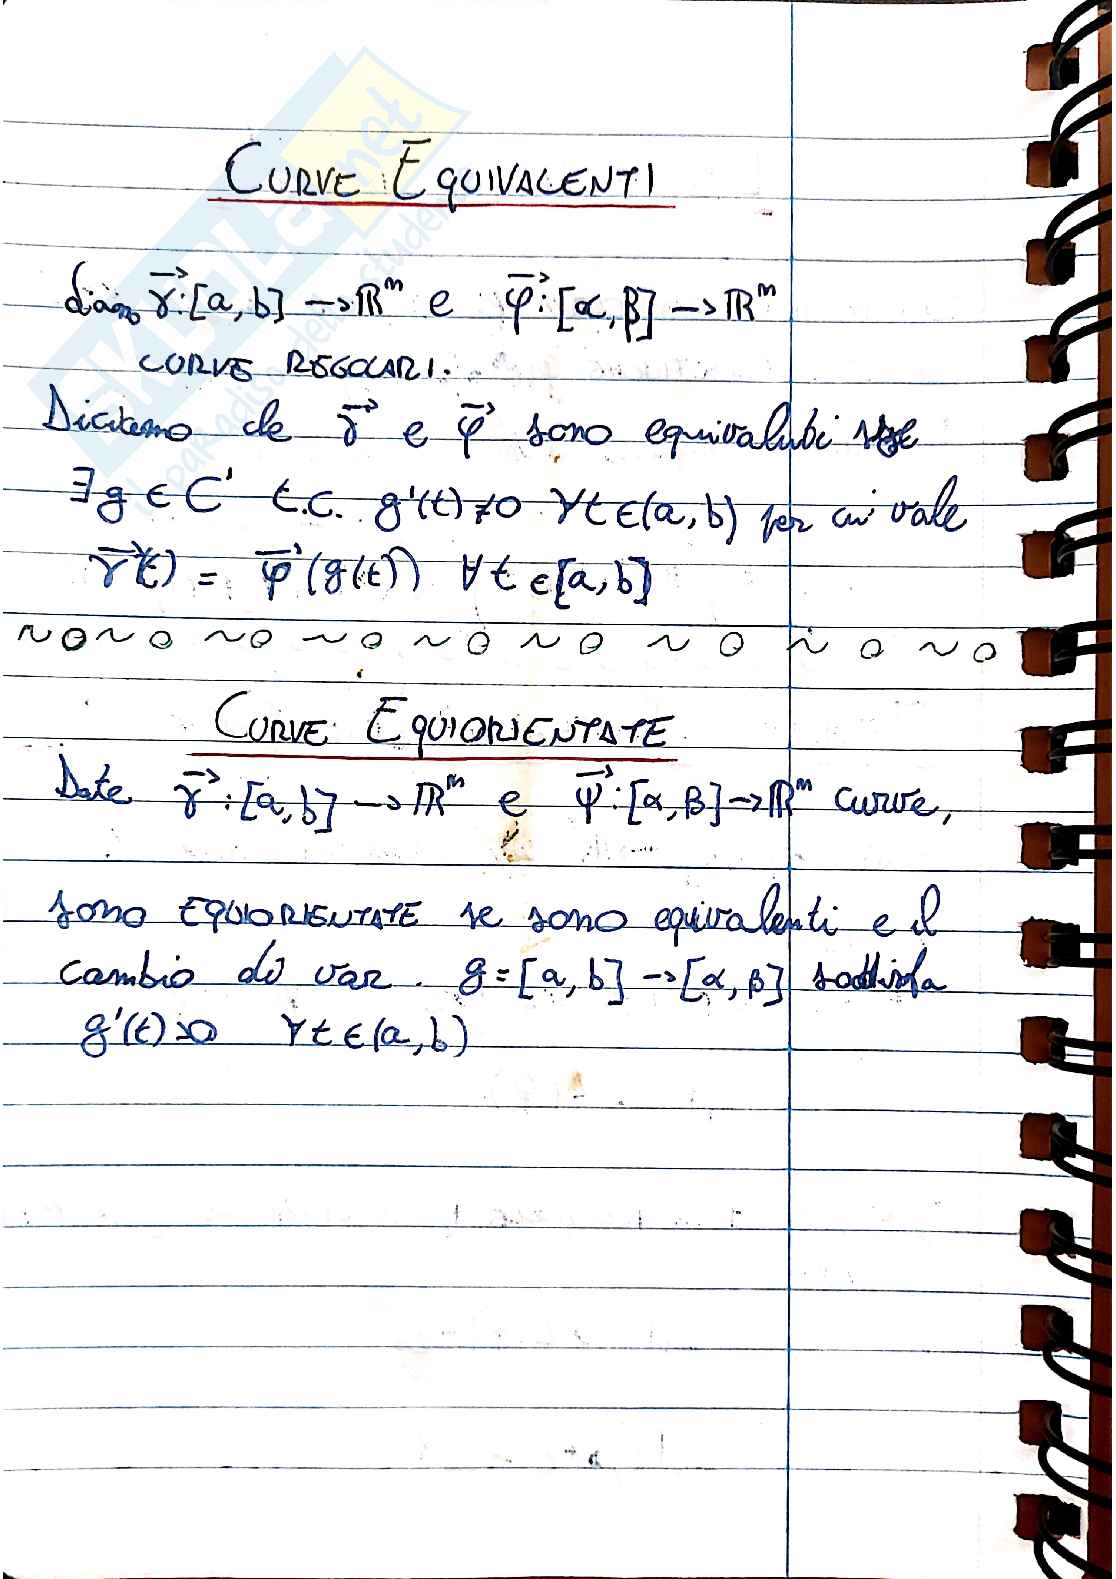 CURVE EQUIVALENTI
siano $\vec{\gamma}: [a, b] \to \mathbb{R}^m$ e $\vec{\varphi}: [\alpha, \beta] \to \mathbb{R}^m$
CURVE REGOLARI.
Diciamo che $\vec{\gamma}$ e $\vec{\varphi}$ sono equivalenti sse
$\exists g \in C^1$ t.c. $g'(t) \neq 0$ $\forall t \in (a, b)$ per cui vale
$\vec{\gamma}(t) = \vec{\varphi}(g(t))$ $\forall t \in [a, b]$
CURVE EQUIORIENTATE
Date $\vec{\gamma}: [a, b] \to \mathbb{R}^m$ e $\vec{\varphi}: [\alpha, \beta] \to \mathbb{R}^m$ curve,
sono EQUIORIENTATE se sono equivalenti e il
cambio di var. $g = [a, b] \to [\alpha, \beta]$ soddisfa
$g'(t) > 0$ $\forall t \in (a, b)$